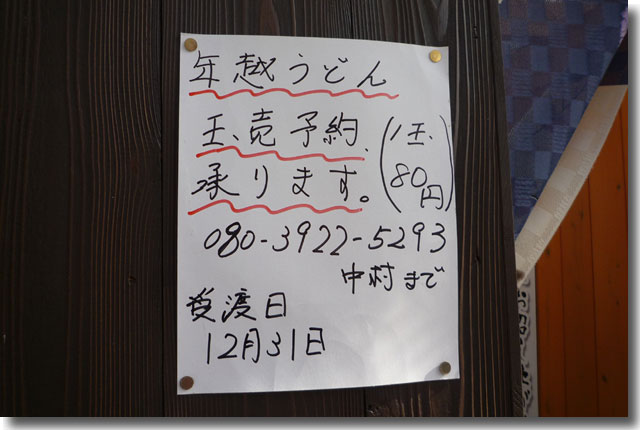 年越うどん
玉売予約、(1玉、80円)
承ります。
080-3922-5293
中村まで
受渡日
12月31日